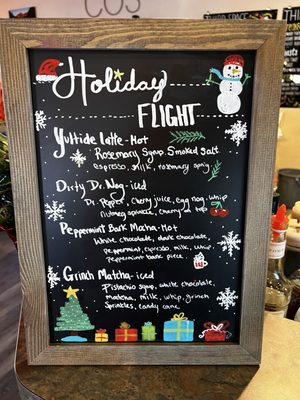 COS
THIRD SPACE
Holiday
FLIGHT
Yultide latte - Hot
Rosemary Syrup, Smoked Salt,
espresso, milk, rosemary sprig
Dirty Dr. Nog - iced
Dr. Pepper, cherry juice, egg nog, whip
nutmeg sprinkle, cherry on top
Peppermint Bark Mocha - Hot
White chocolate, dark chocolate,
peppermint, espresso, milk, whip
Peppermint bark piece
Grinch Matcha - iced
Pistachio syrup, white chocolate,
matcha, milk, whip, grinch
Sprinkles, candy cane